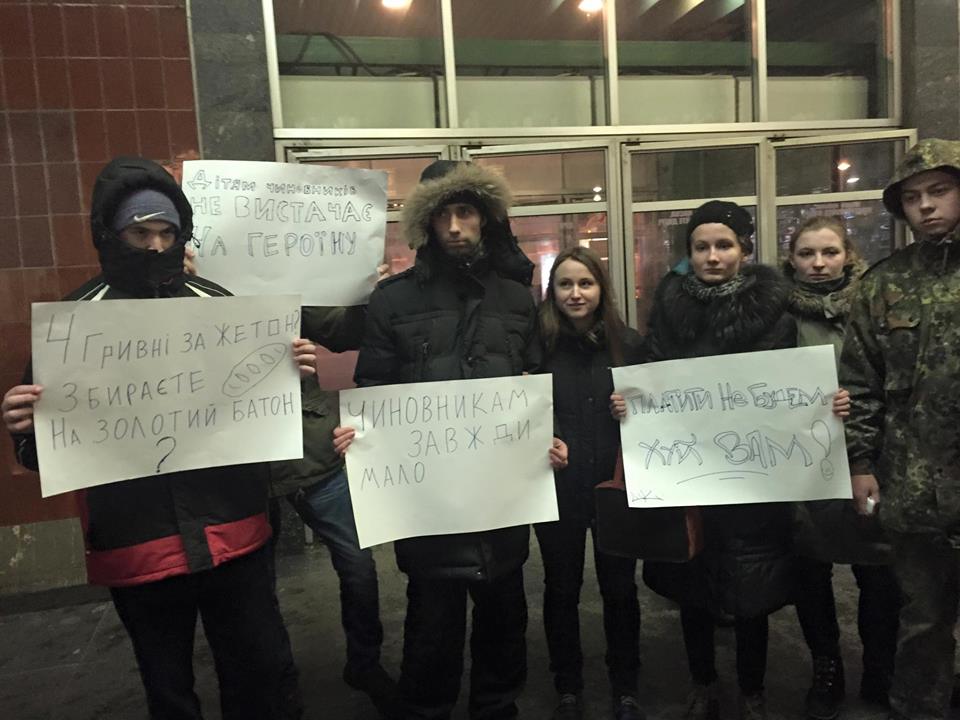 Дітям чиновників
не вистачає
на героїну
4 гривні за жетон?
Збираєте
на золотий батон
?
Чиновникам
завжди
мало
Платити не будем
хуй вам!